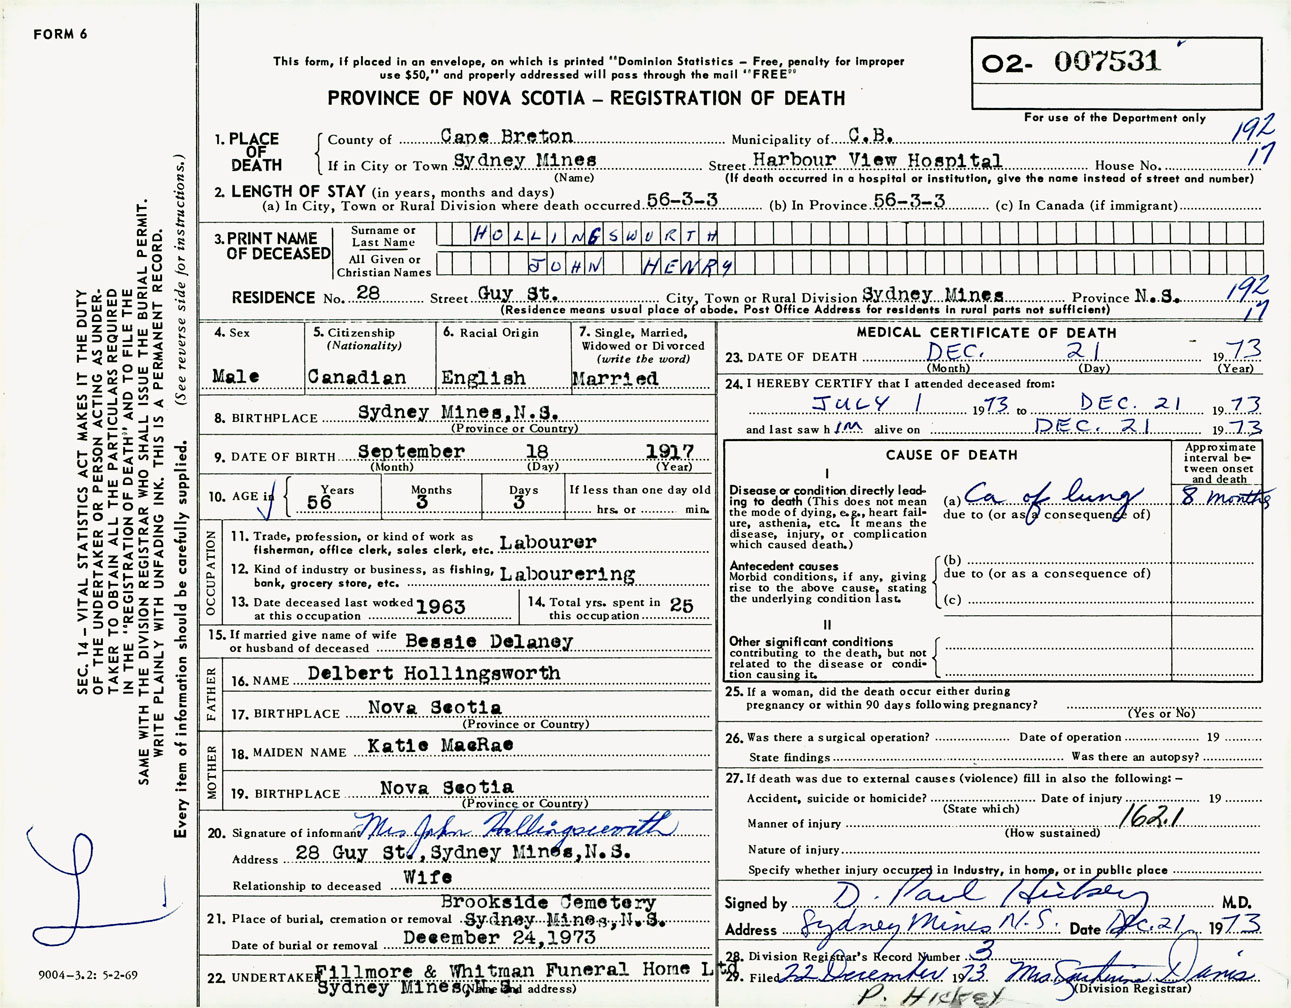 FORM 6
SEC. 14 – VITAL STATISTICS ACT MAKES IT THE DUTY
OF THE UNDERTAKER OR PERSON ACTING AS UNDER-
TAKER TO OBTAIN ALL THE PARTICULARS REQUIRED
IN THE "REGISTRATION OF DEATH" AND TO FILE THE
SAME WITH THE DIVISION REGISTRAR WHO SHALL ISSUE THE BURIAL PERMIT.
WRITE PLAINLY WITH UNFADING INK. THIS IS A PERMANENT RECORD.
Every item of information should be carefully supplied. (See reverse side for instructions.)
9004-3.2: 5-2-69
This form, if placed in an envelope, on which is printed "Dominion Statistics – Free, penalty for improper
use $50," and properly addressed will pass through the mail "FREE"
PROVINCE OF NOVA SCOTIA – REGISTRATION OF DEATH
O2- 007531
For use of the Department only
1. PLACE OF DEATH
County of Cape Breton Municipality of C.B. 192
If in City or Town Sydney Mines Street Harbour View Hospital House No. 17
(Name) (If death occurred in a hospital or institution, give the name instead of street and number)
2. LENGTH OF STAY (in years, months and days)
(a) In City, Town or Rural Division where death occurred 56-3-3 (b) In Province 56-3-3 (c) In Canada (if immigrant)
3. PRINT NAME OF DECEASED
Surname or Last Name HOLLINGSWURTH
All Given or Christian Names JOHN HENRY
RESIDENCE No. 28 Street Guy St. City, Town or Rural Division Sydney Mines Province N.S. 192
(Residence means usual place of abode. Post Office Address for residents in rural parts not sufficient) 17
4. Sex
Male
5. Citizenship
(Nationality)
Canadian
6. Racial Origin
English
7. Single, Married,
Widowed or Divorced
(write the word)
Married
8. BIRTHPLACE Sydney Mines,N.S.
(Province or Country)
9. DATE OF BIRTH September 18 1917
(Month) (Day) (Year)
10. AGE in Years Months Days If less than one day old
56 3 3 hrs. or min.
OCCUPATION
11. Trade, profession, or kind of work as
fisherman, office clerk, sales clerk, etc. Labourer
12. Kind of industry or business, as fishing,
bank, grocery store, etc. Labourering
13. Date deceased last worked
at this occupation 1963
14. Total yrs. spent in
this occupation 25
15. If married give name of wife
or husband of deceased Bessie Delaney
FATHER
16. NAME Delbert Hollingsworth
17. BIRTHPLACE Nova Scotia
(Province or Country)
MOTHER
18. MAIDEN NAME Katie MacRae
19. BIRTHPLACE Nova Scotia
(Province or Country)
20. Signature of informant Mrs John Hollingsworth
Address 28 Guy St.,Sydney Mines,N.S.
Relationship to deceased Wife
Brookside Cemetery
21. Place of burial, cremation or removal Sydney Mines,N.S.
Date of burial or removal December 24,1973
22. UNDERTAKER Fillmore & Whitman Funeral Home Ltd
Sydney Mines,N.S.
(Name and address)
MEDICAL CERTIFICATE OF DEATH
23. DATE OF DEATH DEC. 21 1973
(Month) (Day) (Year)
24. I HEREBY CERTIFY that I attended deceased from:
JULY 1 1973 to DEC. 21 1973
and last saw him alive on DEC. 21 1973
CAUSE OF DEATH
Approximate
interval be-
tween onset
and death
I
Disease or condition directly lead-
ing to death (This does not mean
the mode of dying, e.g., heart fail-
ure, asthenia, etc. It means the
disease, injury, or complication
which caused death.)
(a) Ca of lung 8 months
due to (or as a consequence of)
Antecedent causes
Morbid conditions, if any, giving
rise to the above cause, stating
the underlying condition last.
(b)
due to (or as a consequence of)
(c)
II
Other significant conditions
contributing to the death, but not
related to the disease or condi-
tion causing it.
25. If a woman, did the death occur either during
pregnancy or within 90 days following pregnancy?
(Yes or No)
26. Was there a surgical operation? Date of operation 19
State findings Was there an autopsy?
27. If death was due to external causes (violence) fill in also the following: –
Accident, suicide or homicide? Date of injury 19
(State which)
Manner of injury 162.1
(How sustained)
Nature of injury
Specify whether injury occurred in Industry, in home, or in public place
Signed by D. Paul Hickey M.D.
Address Sydney Mines N.S. Date Dec. 21 1973
28. Division Registrar's Record Number 3
29. Filed 22 December 1973 Mrs Davis
(Division Registrar)
P. HICKEY